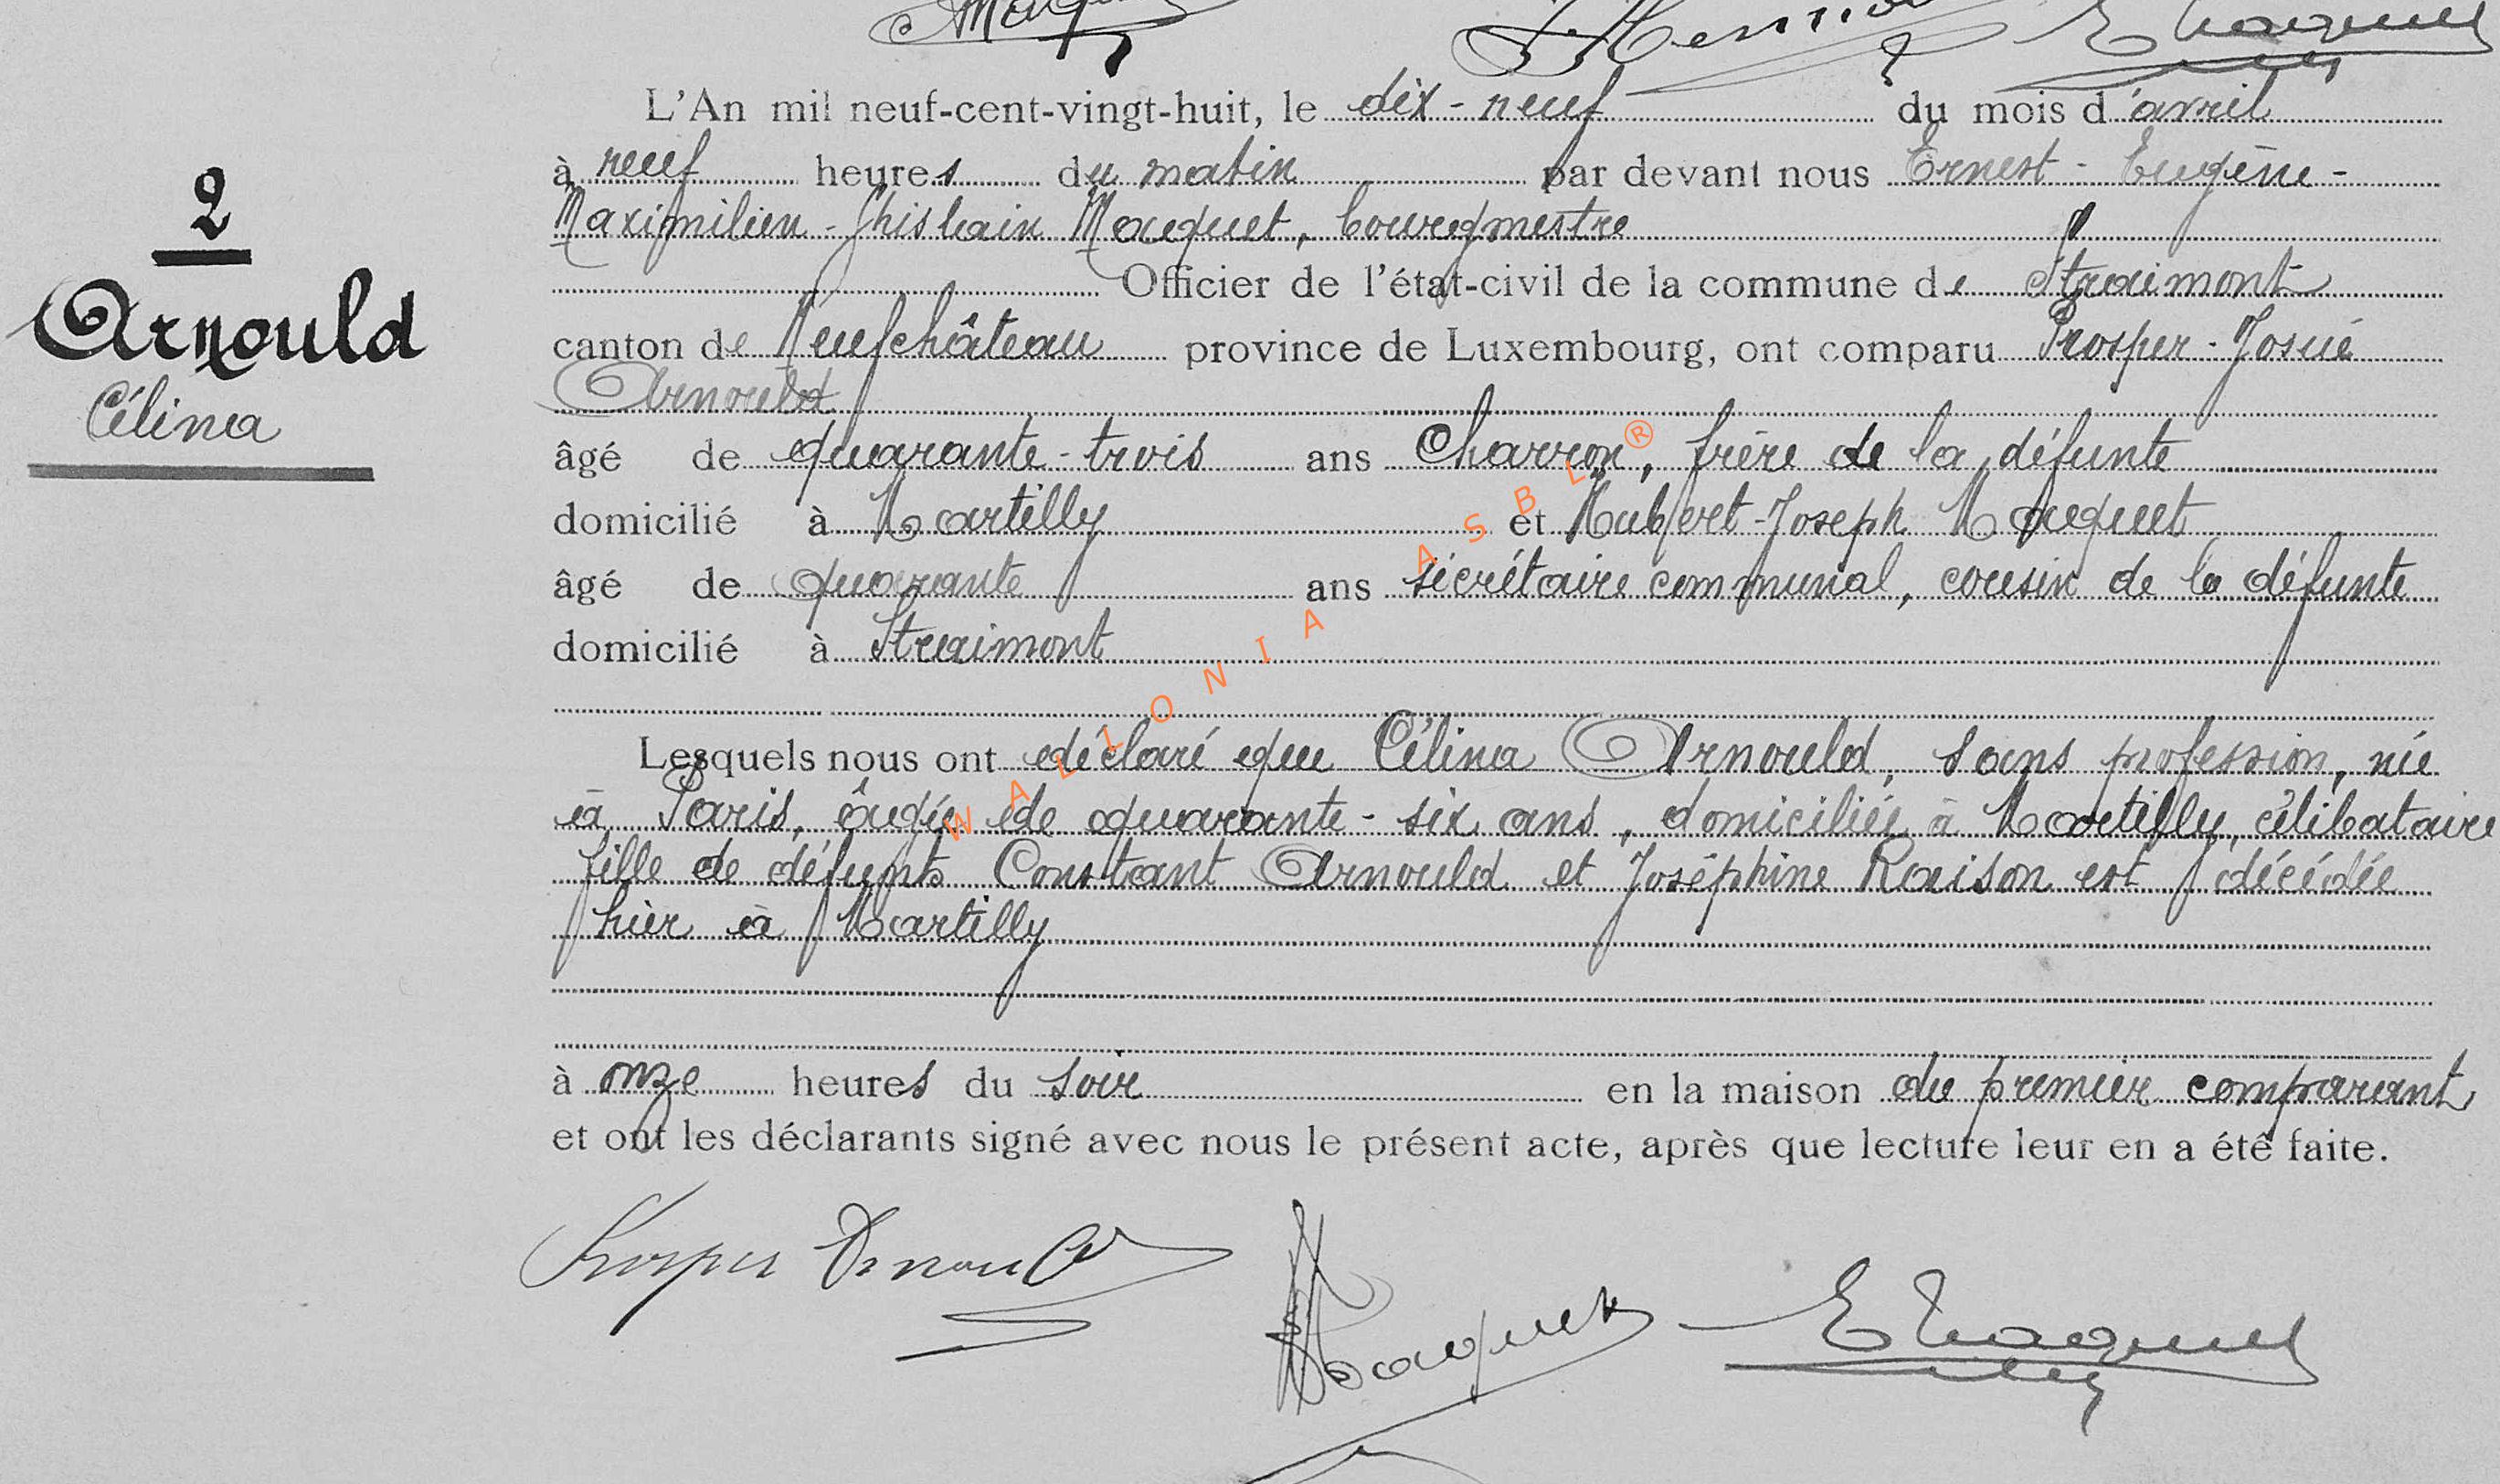 L'An mil neuf-cent-vingt-huit, le dix-neuf du mois d'avril
à neuf heures du matin par devant nous Ernest-Eugène-
2
Maximilien-Ghislain Macquet, bourgmestre
Officier de l'état-civil de la commune de Straimont
Arnould
canton de Neufchâteau province de Luxembourg, ont comparu Prosper-Josué
Célina
Arnould
âgé de quarante-trois ans Charron, frère de la défunte
domicilié à Martilly et Hubert-Joseph Macquet
âgé de quarante ans sécrétaire communal, cousin de la défunte
domicilié à Straimont
WALLONIA ASBL ®
Lesquels nous ont déclaré que Célina Arnould, sans profession, née
à Paris, âgée de quarante-six ans, domiciliée à Martilly, célibataire
fille de défunts Constant Arnould et Joséphine Raison est décédée
hier à Martilly
à onze heures du soir en la maison du premier comparant
et ont les déclarants signé avec nous le présent acte, après que lecture leur en a été faite.
Prosper Arnould
Macquet
E Macquet